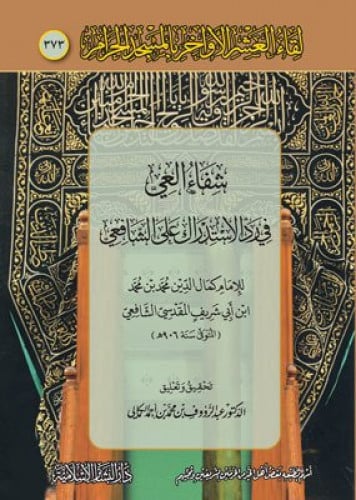 لقاء العشر الأواخر بالمسجد الحرام
٣٧٣
شفاء العي
في رد الاستدراك على الشافعي
للإمام كمال الدين محمد بن محمد
ابن أبي شريف المقدسي الشافعي
(المتوفى سنة ٩٠٦ هـ)
تحقيق وتعليق
الدكتور عبد الرؤوف بن محمد بن أحمد الكمالي
دار البشائر الإسلامية